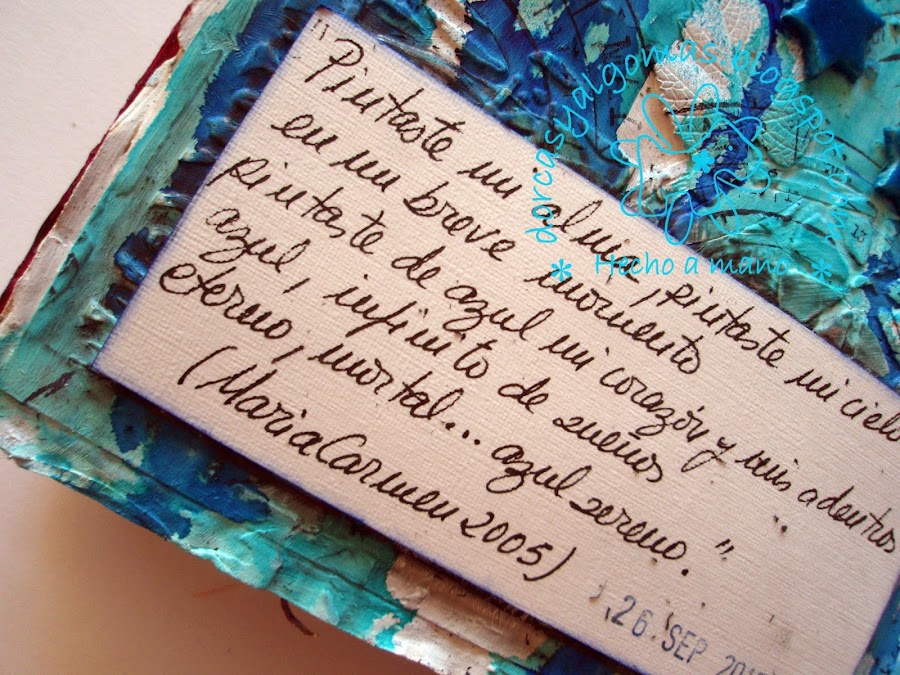 "Pintaste mi alma, pintaste mi cielo
en un breve momento
pintaste de azul mi corazón y mis adentros
azul, infinito de sueños
eterno, mortal... azul sereno."
(MariaCarmen 2005)
26. SEP
barcasyalgomas.blogspot
* Hecho a mano *
13